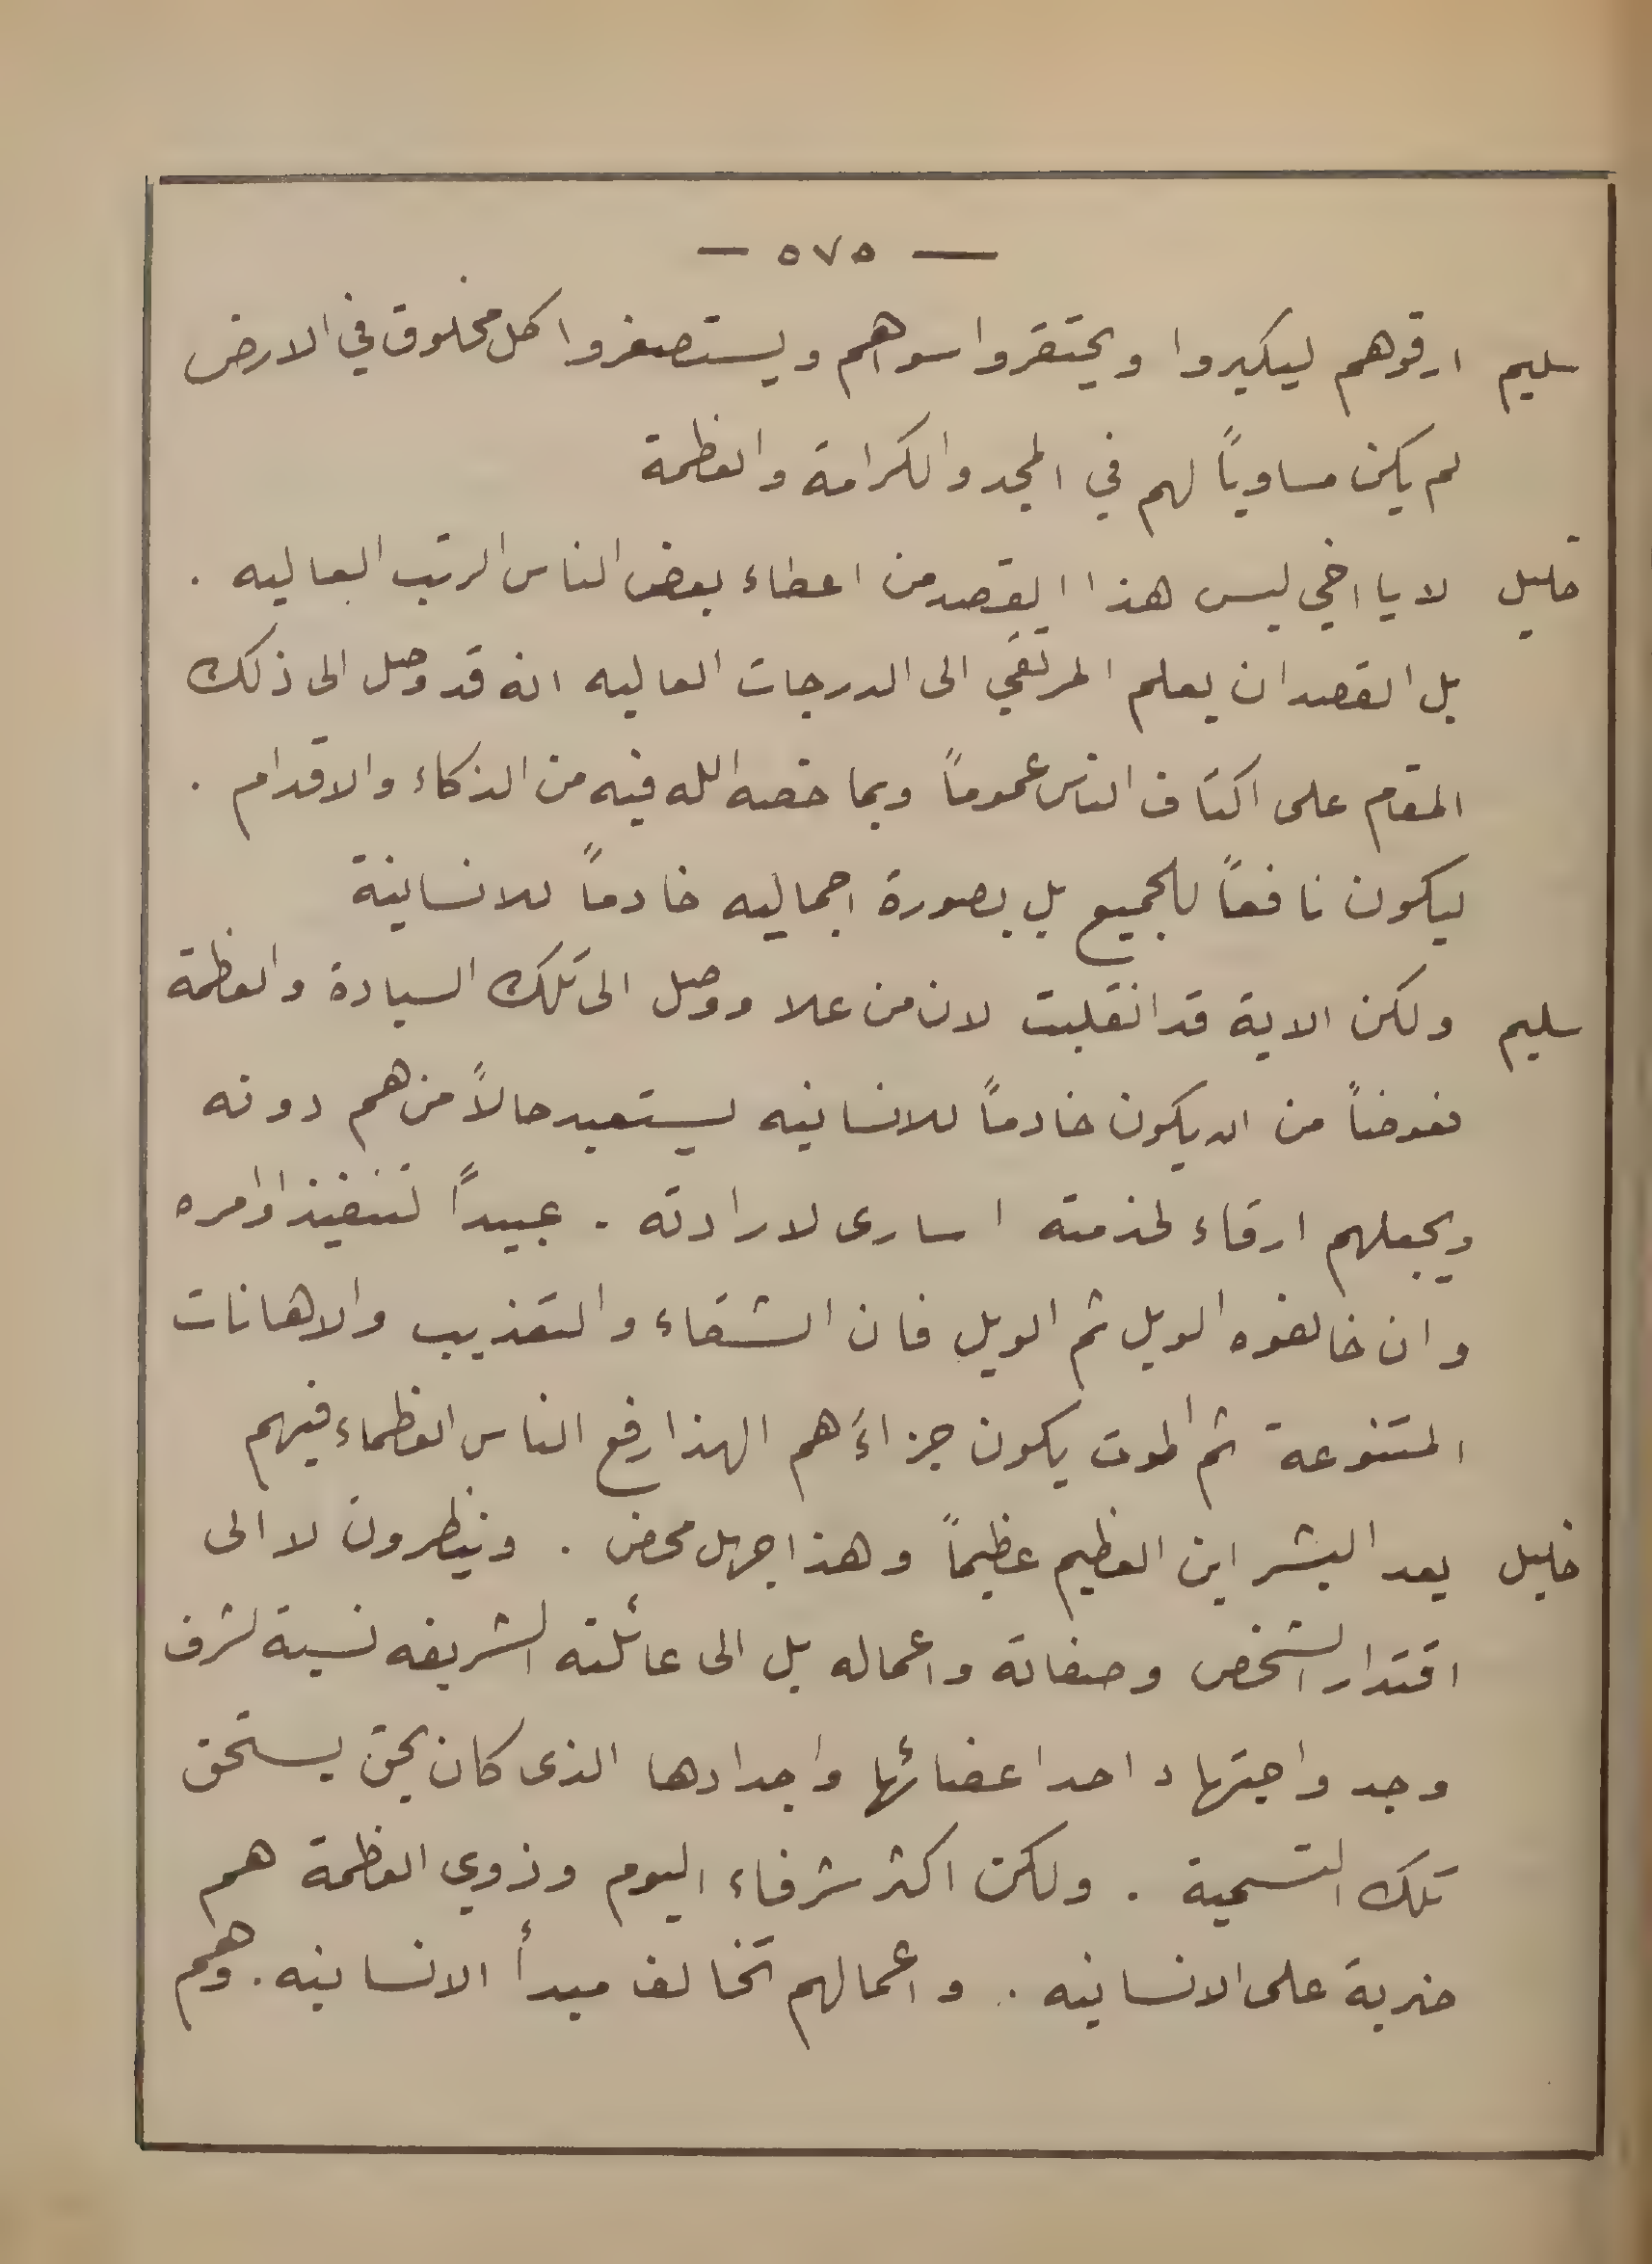 — ٥٧٥ —
سليم ارقوهم ليكبروا ويحتقروا سواهم ويستصغروا كل مخلوق في الارض
لم يكن مساوياً لهم في المجد والكرامة والعظمة
خليل لا يا اخي ليس هذا القصد من اعطاء بعض الناس الرتب العاليه .
بل القصد ان يعلم المرتقي الى الدرجات العاليه انه قد وصل الى ذلك
المقام على اكتاف الناس عموماً وبما خصه الله فيه من الذكاء والاقدام .
ليكون نافعاً للجميع بل بصورة اجماليه خادماً للانسانية
سليم ولكن الاية قد انقلبت لان من علا ووصل الى تلك السيادة والعظمة
فعوضاً من ان يكون خادماً للانسانيه يستعبد حالاً من هم دونه
ويجعلهم ارقاء لخدمته اسارى لارادته . عبيداً لتنفيذ اوامره
وان خالفوه الويل ثم الويل فان الشقاء والتعذيب والاهانات
المتنوعة ثم الموت يكون جزاءَهم الهذا رفع الناس العظماء فيهم
خليل يعد البشر ابن العظيم عظيماً وهذا جهل محض . وينظرون لا الى
اقتدار الشخص وصفاته واعماله بل الى عائلته الشريفه نسبة لشرف
وجد واجتهاد احد اعضائها واجدادها الذى كان بحق يستحق
تلك التسمية . ولكن اكثر شرفاء اليوم وذوي العظمة هم
ضربة على الانسانيه . واعمالهم تخالف مبدأ الانسانيه . وهم